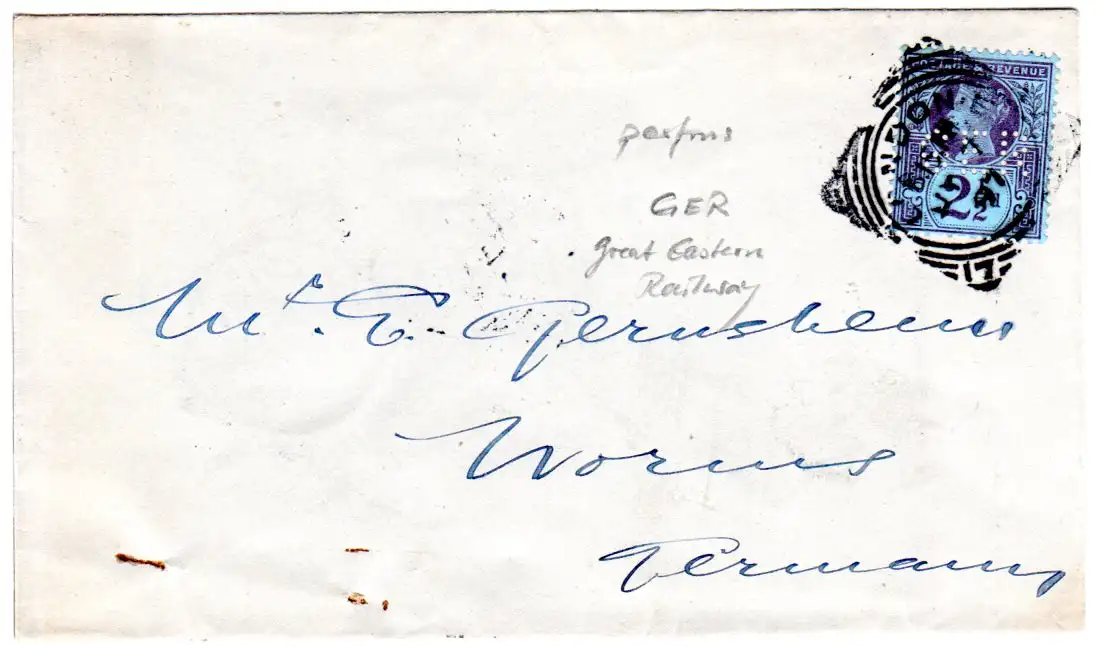 POSTAGE & REVENUE
LONDON
97
17
2½
perfins
GER
Great Eastern
Railway
Mr. E. Gernsheim
Worms
Germany